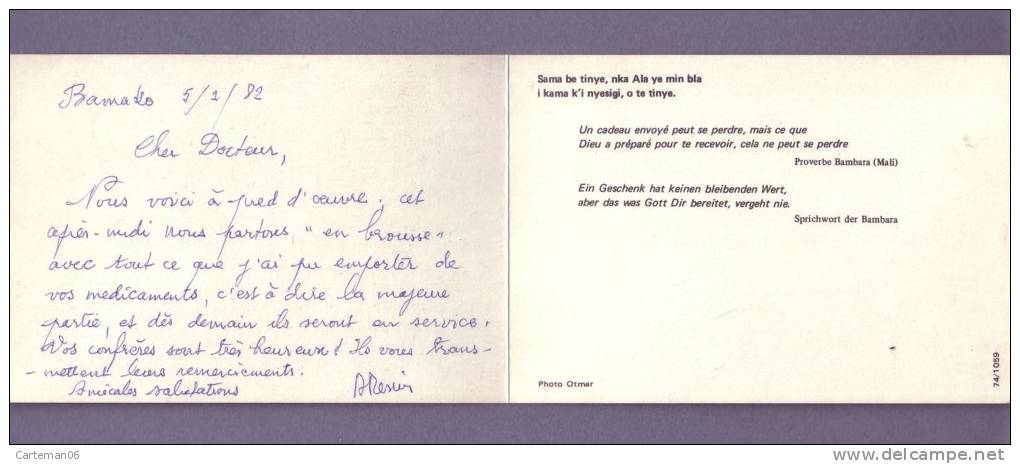 Bamako 5/2/82
Cher Docteur,
Nous voici à pied d'œuvre, cet
après-midi nous partons "en brousse"
avec tout ce que j'ai pu emporter de
vos medicaments, c'est à dire la majeure
partie, et dès demain ils seront en service.
Vos confrères sont très heureux! Ils vous trans-
-mettent leurs remerciements.
Amicales salutations
Sama be tinye, nka Ala ye min bla
i kama k'i nyesigi, o te tinye.
Un cadeau envoyé peut se perdre, mais ce que
Dieu a préparé pour te recevoir, cela ne peut se perdre
Proverbe Bambara (Mali)
Ein Geschenk hat keinen bleibenden Wert,
aber das was Gott Dir bereitet, vergeht nie.
Sprichwort der Bambara
Photo Otmar
74/1059
Carteman06
www.delcampe.net